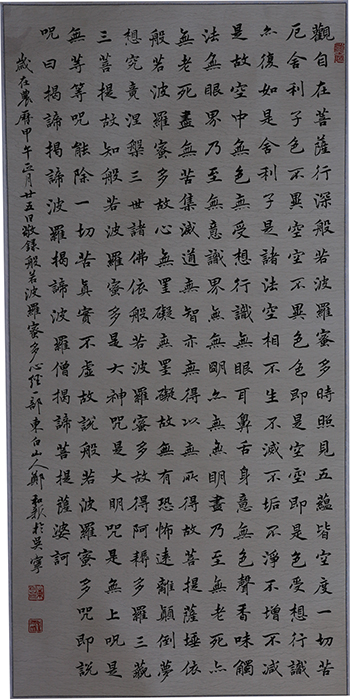 觀自在菩薩行深般若波羅蜜多時照見五蘊皆空度一切苦
厄舍利子色不異空空不異色色即是空空即是色受想行識
亦復如是舍利子是諸法空相不生不滅不垢不淨不增不減
是故空中無色無受想行識無眼耳鼻舌身意無色聲香味觸
法無眼界乃至無意識界無無明亦無無明盡乃至無老死亦
無老死盡無苦集滅道無智亦無得以無所得故菩提薩埵依
般若波羅蜜多故心無罣礙無罣礙故無有恐怖遠離顛倒夢
想究竟涅槃三世諸佛依般若波羅蜜多故得阿耨多羅三藐
三菩提故知般若波羅蜜多是大神呪是大明呪是無上呪是
無等等呪能除一切苦真實不虛故說般若波羅蜜多呪即說
呪曰揭諦揭諦波羅揭諦波羅僧揭諦菩提薩婆訶
歲在農曆甲午正月廿五日敬錄般若波羅蜜多心經一部東白山人鄭和於吳寧